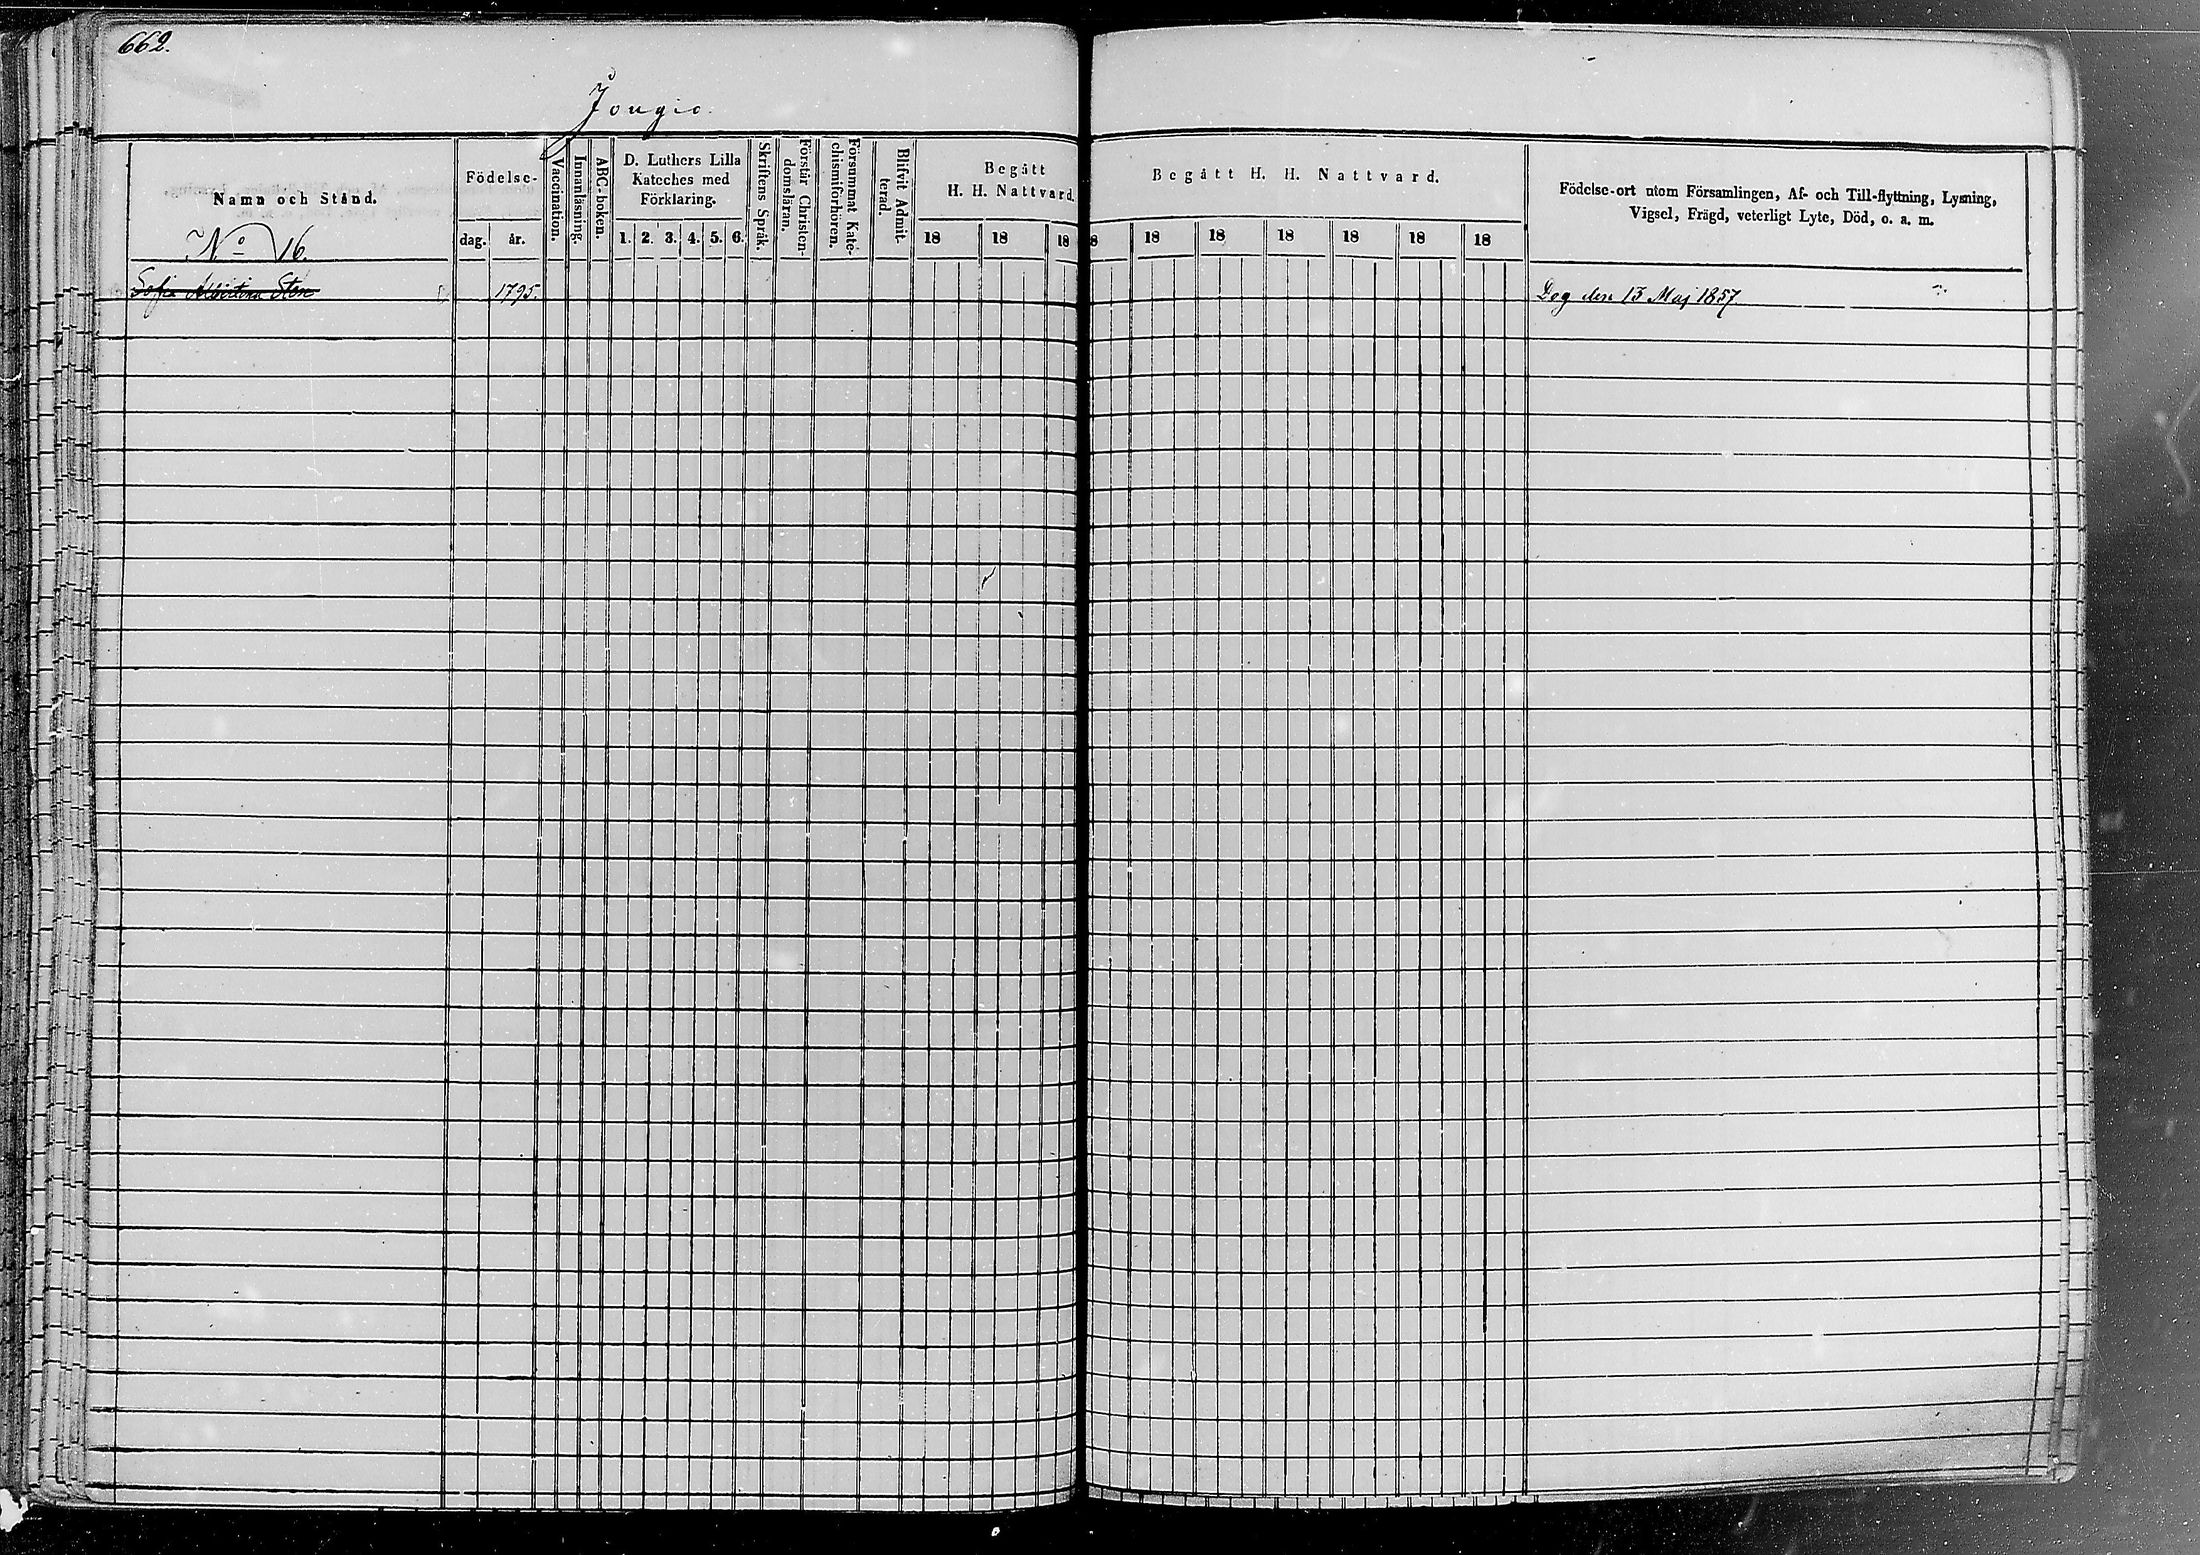 662.
Jougio.
Namn och Stånd.
No 16.
Födelse-
dag. år.
Vaccination.
Innanläsning.
ABC-boken.
D. Luthers Lilla
Kateches med
Förklaring.
1. 2. 3. 4. 5. 6.
Skriftens Språk.
Förstår Christen-
domsläran.
Försummat Kate-
chismiförhören.
Blifvit Admit-
terad.
Begått
H. H. Nattvard.
18 18 18
Begått H. H. Nattvard.
8 18 18 18 18 18 18
Födelse-ort utom Församlingen, Af- och Till-flyttning, Lysning,
Vigsel, Frägd, veterligt Lyte, Död, o. a. m.
Sofia Albertina Sten 1795. Deg den 13 Maj 1857.